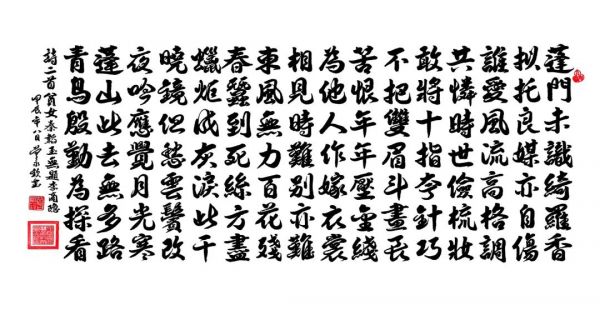 蓬門未識綺羅香
拟托良媒亦自傷
誰愛風流高格調
共憐時世儉梳妝
敢將十指夸針巧
不把雙眉斗畫長
苦恨年年壓金綫
為他人作嫁衣裳
相見時難別亦難
東風無力百花殘
春蠶到死絲方盡
蠟炬成灰淚此干
曉鏡但愁雲鬢改
夜吟應覺月光寒
蓬山此去無多路
青鳥殷勤為探看
詩二首貧女秦韜玉無題李商隱
甲辰年八月